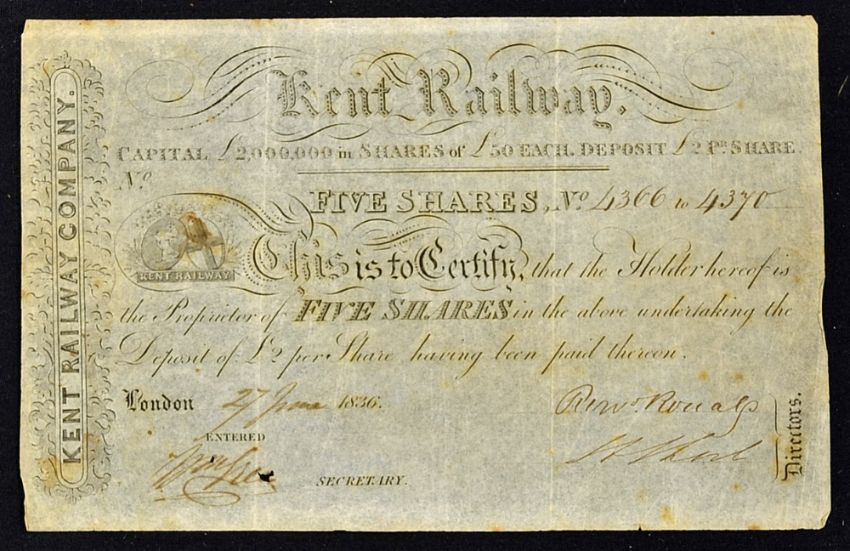 KENT RAILWAY COMPANY.
Kent Railway.
CAPITAL £2,000,000 in SHARES of £50 EACH. DEPOSIT £2 PR. SHARE.
No.
FIVE SHARES, No. 4366 to 4370
KENT RAILWAY
This is to Certify, that the Holder hereof is
the Proprietor of FIVE SHARES in the above undertaking the
Deposit of £2 per Share having been paid thereon.
London 27 June 1836.
ENTERED
SECRETARY.
Directors.